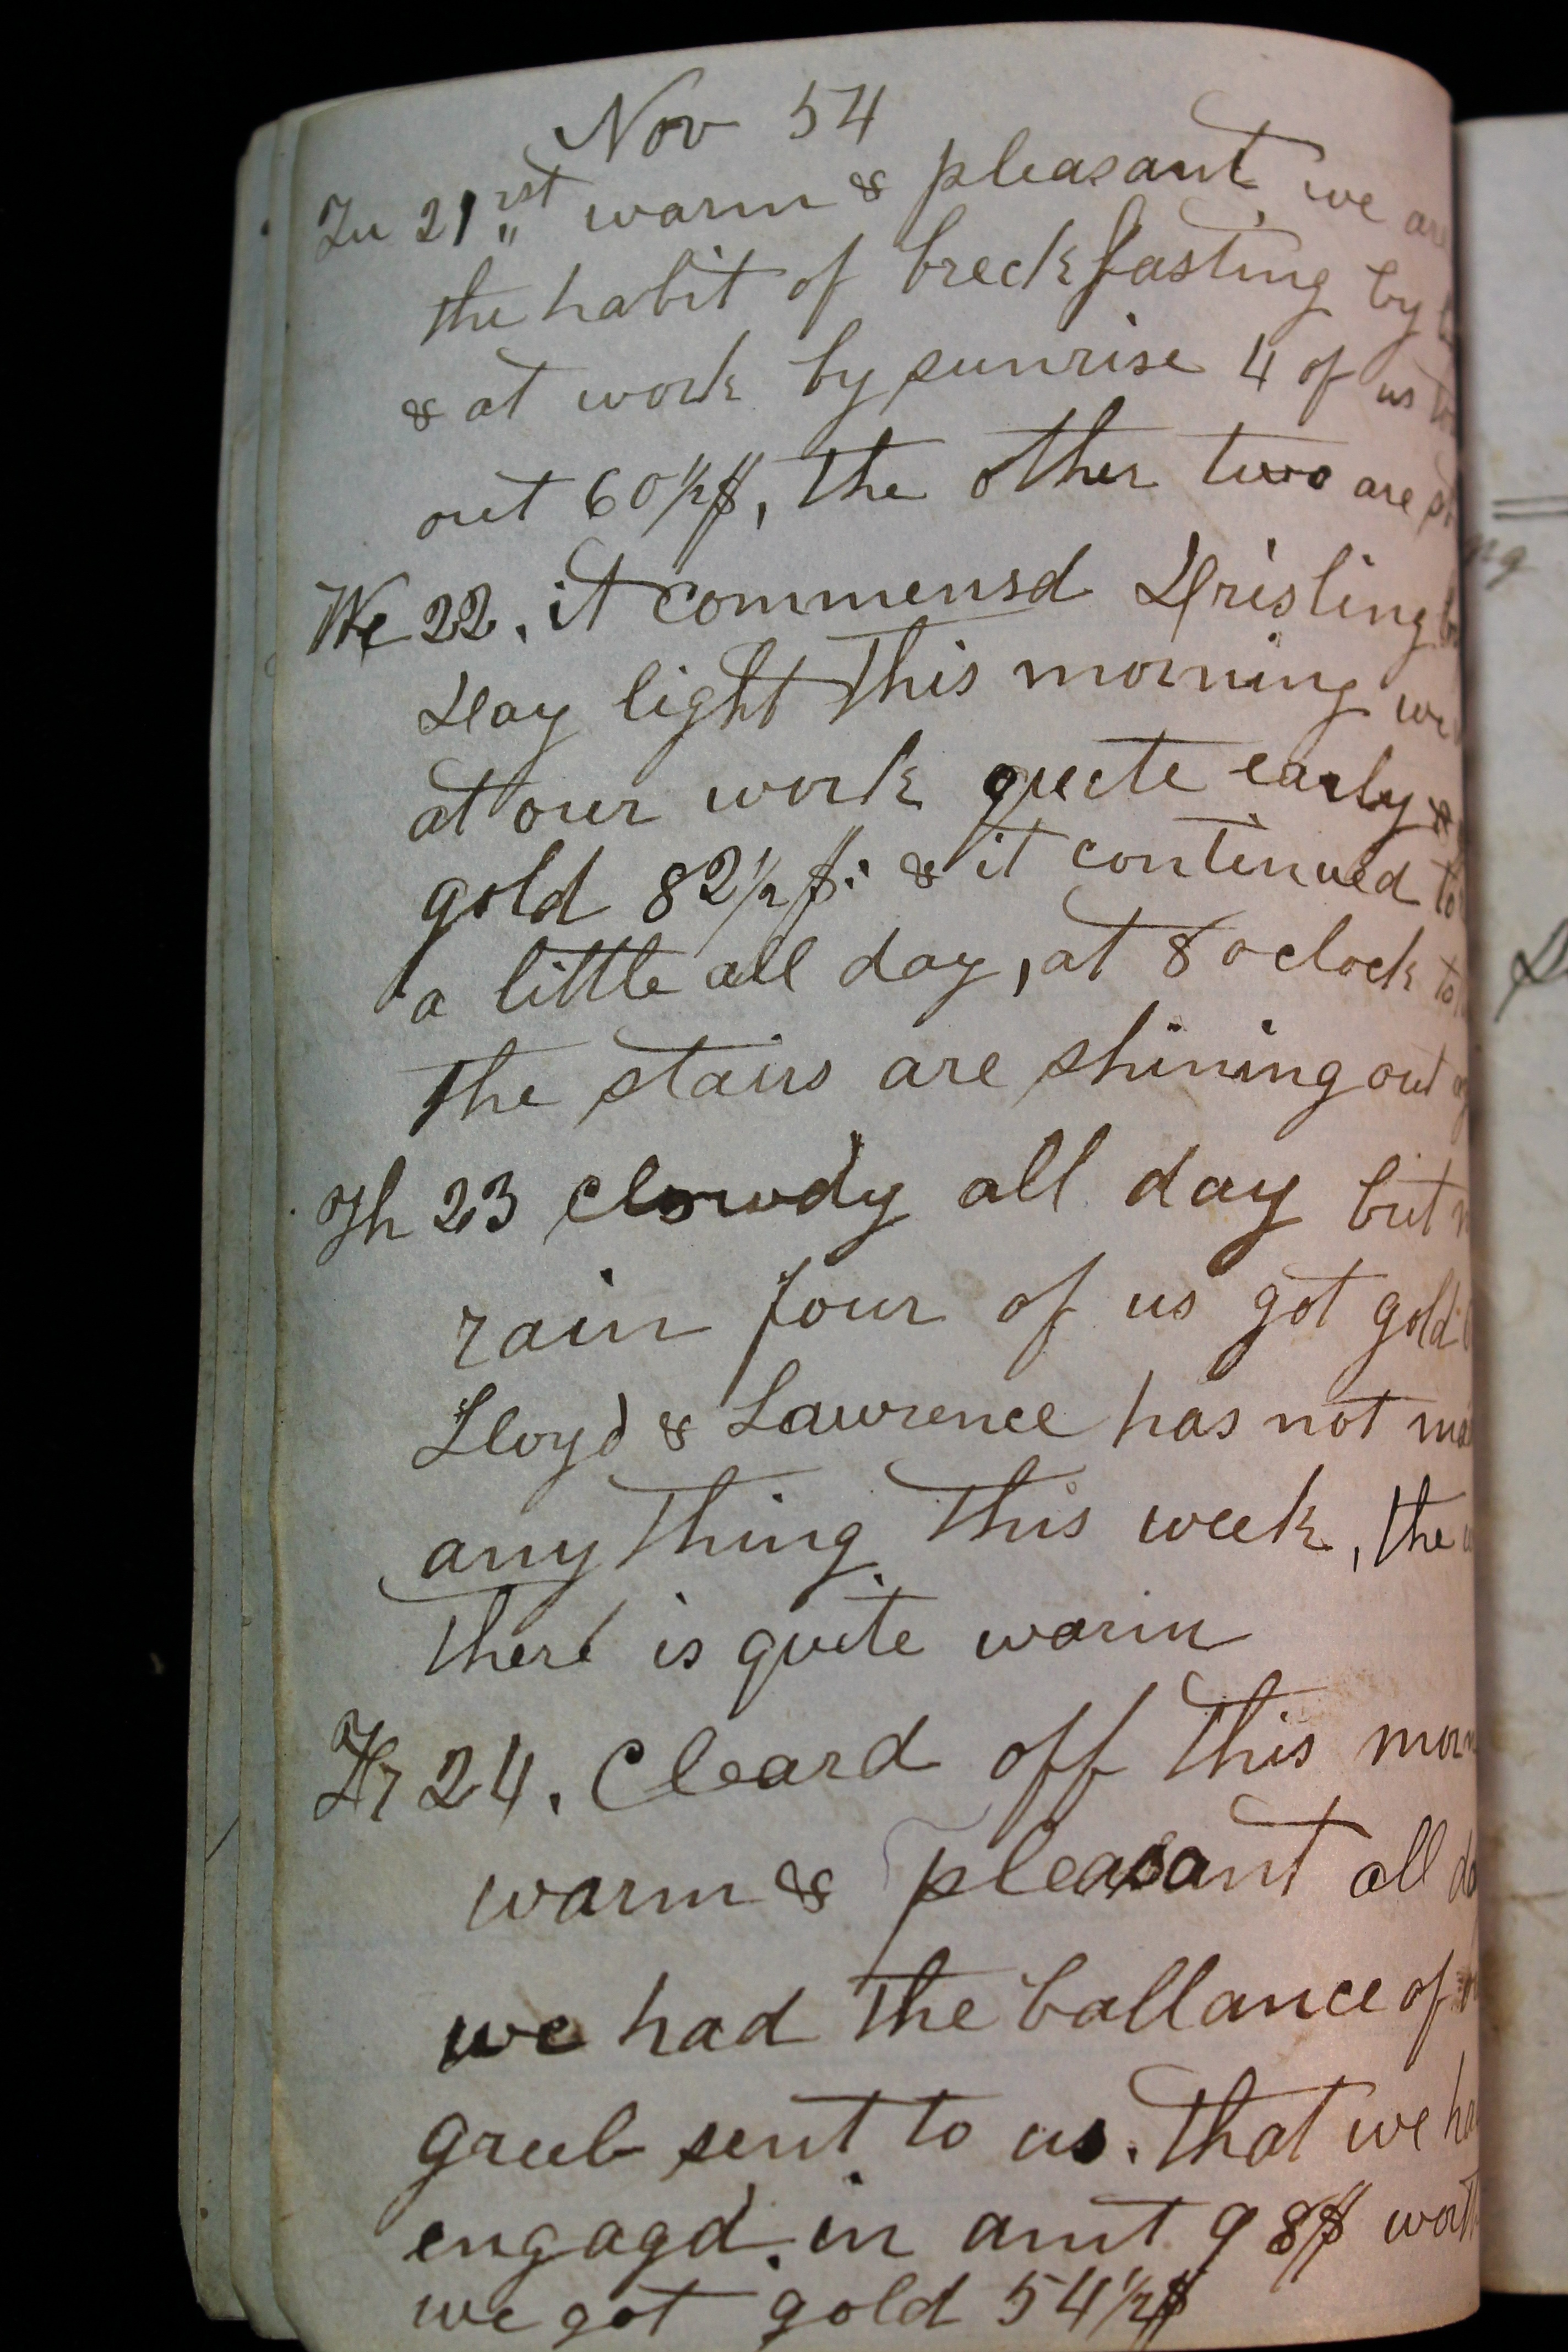 Nov 54
Tu 21rst warm & pleasant, we are
the habit of breckfasting by
& at work by sunrise 4 of us
out 60½$, the other two are
We 22. it commensd Drisling
Day light this morning we
at our work quite early &
gold 82½$. & it continued to
a little all day, at 8 oclock
the stairs are shining out
Th 23 clowdy all day but
rain four of us got gold
Lloyd & Lawrence has not
any thing this week, the
there is quite warm
Fr 24. Cleard off this
warm & pleasant all
we had the ballance of
grub sent to us. that we
engagd. in amt 98$ worth
we got gold 54½$